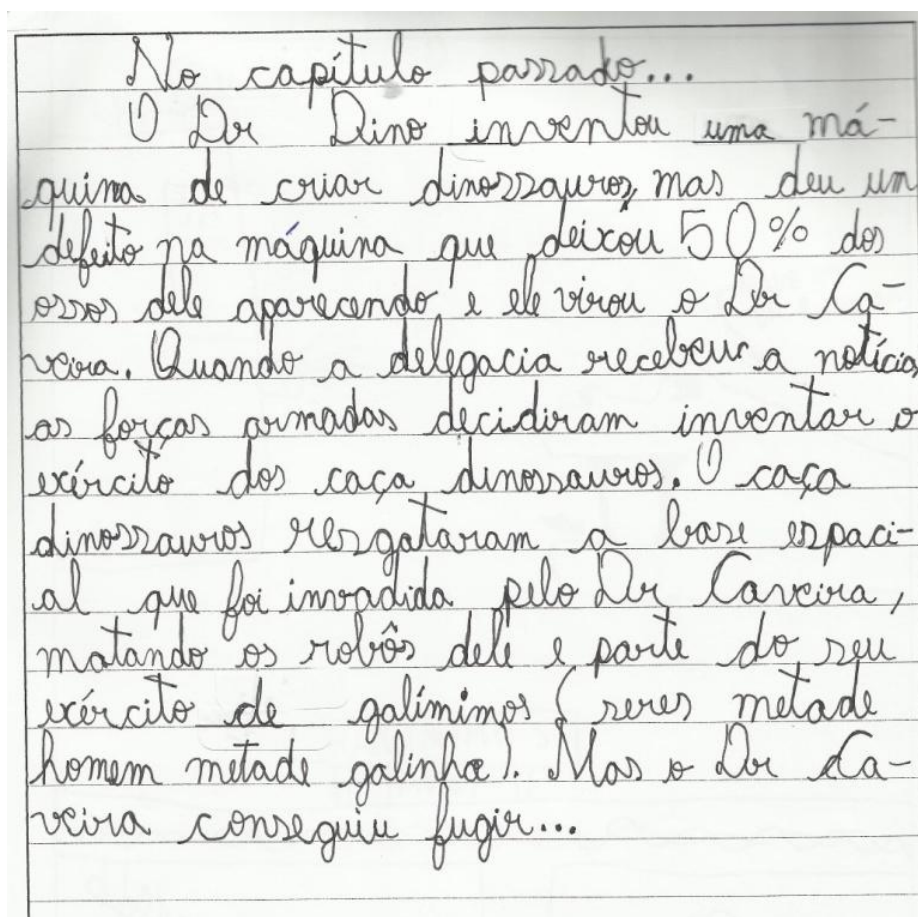 No capítulo passado...
O Dr Dino inventou uma má-
quina de criar dinossauros, mas deu um
defeito na máquina que deixou 50% dos
ossos dele aparecendo e ele virou o Dr Ca-
veira. Quando a delegacia recebeur a notícia,
as forças armadas decidiram inventar o
exército dos caça dinossauros. O caça
dinossauros resgataram a base espaci-
al que foi invadida pelo Dr Caveira,
matando os robôs dele e parte do seu
exército de galímimos (seres metade
homem metade galinha). Mas o Dr Ca-
veira conseguiu fugir...